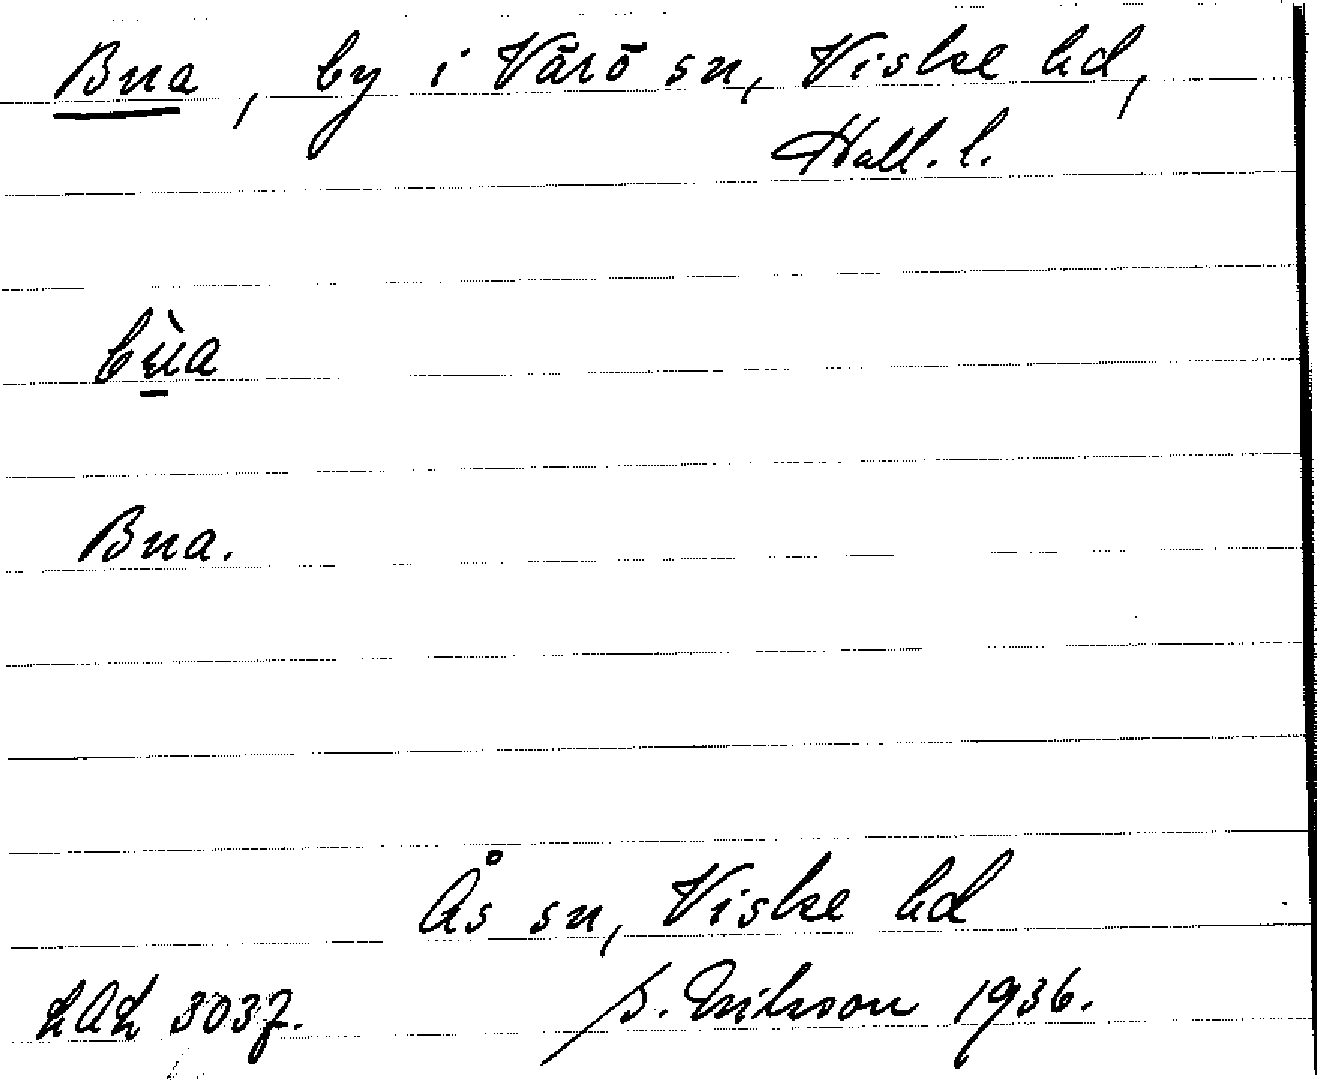 Bua, by i Värö sn, Viske hd,
Hall. l.
bùa
Bua.
Ås sn, Viske hd
LAL 3037. S. Eriksson 1936.